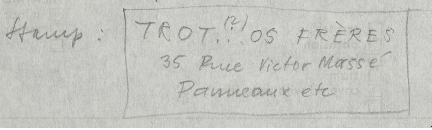 Stamp : TROT..(?).OS FRÈRES
35 Rue Victor Massé
Panneaux etc